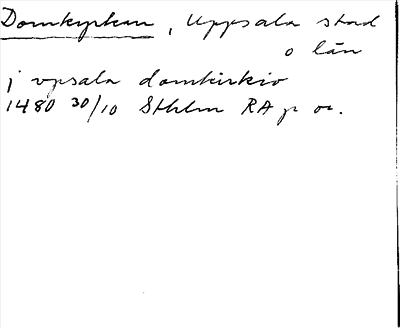 Domkyrkan, Uppsala stad
o län
j vpsala domkirkio
1480 30/10 Sthlm RA p or.